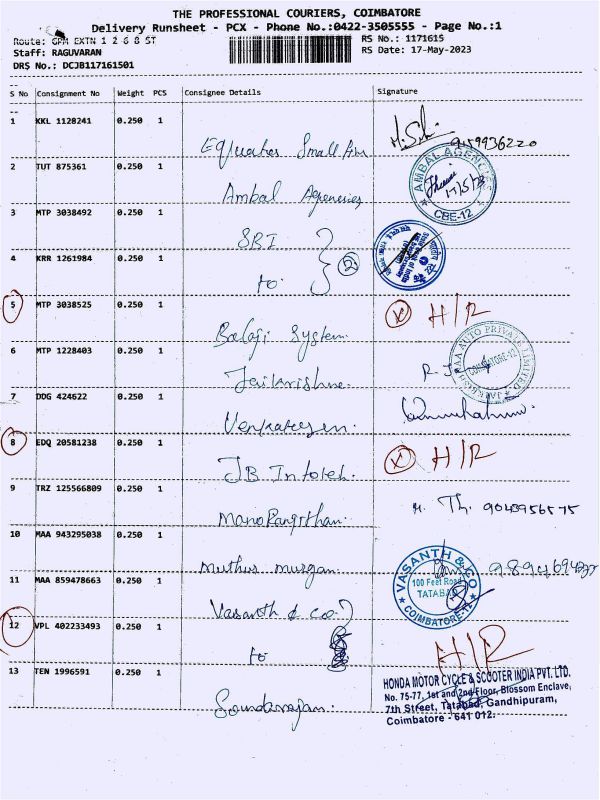 THE PROFESSIONAL COURIERS, COIMBATORE
Delivery Runsheet - PCX - Phone No.:0422-3505555 - Page No.:1
Route: GPM EXTN 1 2 6 8 ST
RS No.: 1171615
Staff: RAGUVARAN
RS Date: 17-May-2023
DRS No.: DCJB117161501
S No Consignment No Weight PCS Consignee Details Signature
1 KKL 1128241 0.250 1
Equatas Small
2 TUT 875361 0.250 1
Ambal Agencies
AMBAL AGENCIES
17/5/23
CBE-12
3 MTP 3038492 0.250 1
SBI
4 KRR 1261984 0.250 1
to
2
State Bank of India
5 MTP 3038525 0.250 1 X H/R
Balaji System
6 MTP 1228403 0.250 1
Jaikrishna
AUTO PRIVATE LIMITED
COIMBATORE-12
7 DDG 424622 0.250 1
Venkatesan
8 EDQ 20581238 0.250 1 X H/R
JB Infotech
9 TRZ 125566809 0.250 1
Manoranjithan
10 MAA 943295038 0.250 1
Muthu Murgan
11 MAA 859478663 0.250 1
Vasanth & Co
VASANTH & CO
100 Feet Road
TATABAD
COIMBATORE-12
12 VPL 402233493 0.250 1 H/R
to
13 TEN 1996591 0.250 1
Soundarrajan
HONDA MOTOR CYCLE & SCOOTER INDIA PVT. LTD.
No. 75-77, 1st and 2nd Floor, Blossom Enclave,
7th Street, Tatabad, Gandhipuram,
Coimbatore - 641 012.